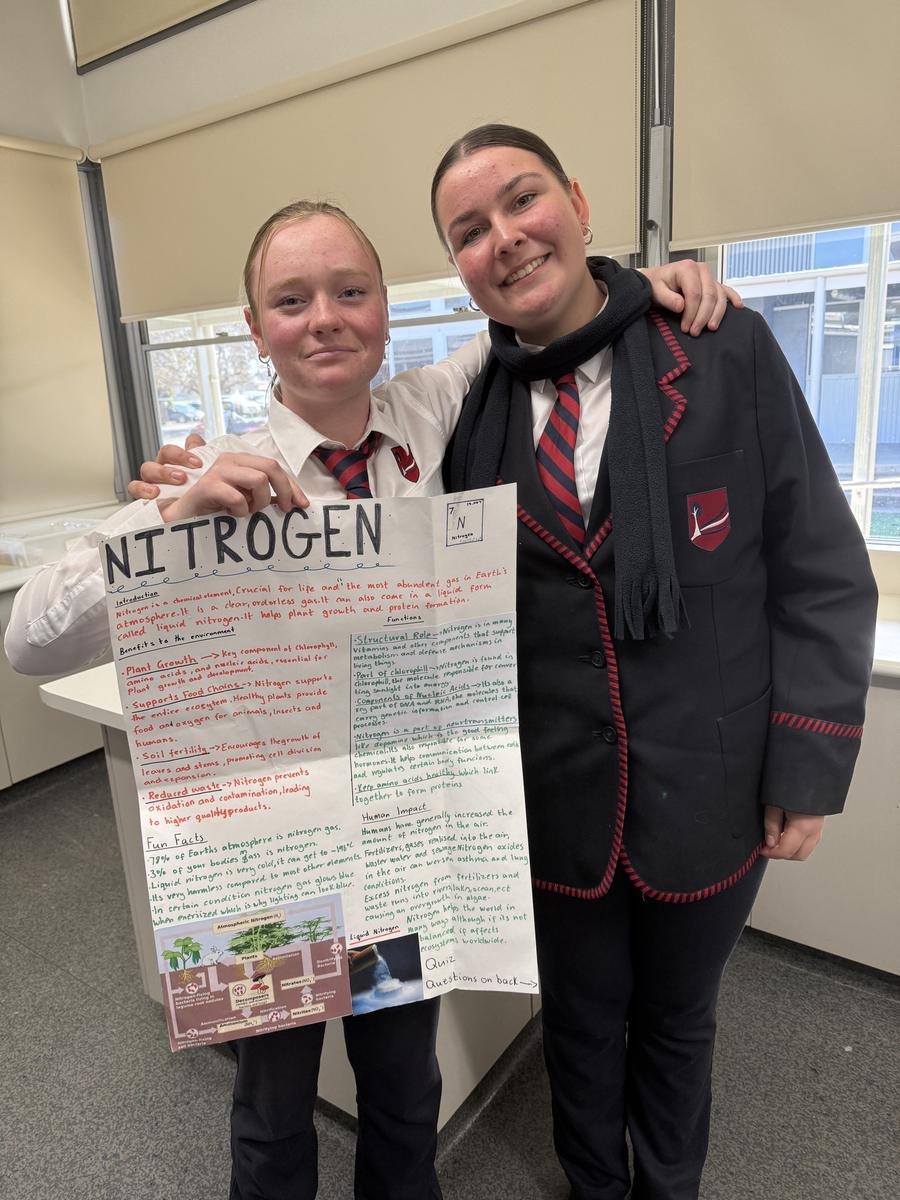 NITROGEN
7
14.007
N
Nitrogen
Introduction
Nitrogen is a chemical element, Crucial for life and the most abundent gas in Earth's
atmosphere. It is a clear, orderless gas. It can also come in a liquid form
called liquid nitrogen. It helps plant growth and protein formation.
Benefits to the environment
· Plant Growth → Key component of chlorophyll,
amino acids, and nucleic acids, essential for
Plant growth and development.
· Supports Food Chains → Nitrogen supports
the entire ecosystem. Healthy plants provide
food and oxygen for animals, insects and
humans.
· Soil fertility → Encourages the growth of
leaves and stems, promoting cell division
and expansion.
· Reduced waste → Nitrogen prevents
oxidation and contamination, leading
to higher quality products.
Functions
· Structural Role → Nitrogen is in many
Vitamins and other components that support
metabolism and defense mechanisms in
living things.
· Part of chlorophyll → Nitrogen is found in
chlorophyll, the molecule responsible for conver
ting sunlight into energy.
· Components of Nucleic Acids → Its also a
key part of DNA and RNA, the molecules that
carry genetic information and control cell
processes.
· Nitrogen is a part of neurotransmitters
like dopamine which is the good feeling
chemical. Its also responsible for some
hormones. It helps communication between cells
and regulates certain body funcions.
· Keep amino acids healthy which link
together to form proteins
Fun Facts
· 78% of Earths atmosphere is nitrogen gas.
· 3% of your bodies mass is nitrogen.
· Liquid nitrogen is very cold, it can get to -196°C
· Its very harmless compared to most other elements.
· In certain condition nitrogen gas glows blue
when enerized which is why lighting can look blue.
Human Impact
Humans have generally increased the
amount of nitrogen in the air.
Fertilizers, gases realised into the air,
waste water and sewage. Nitrogen oxides
in the air can worsen asthma and lung
conditions.
Excess nitrogen from fertilizers and
waste runs into rivers, lakes, ocean, ect
causing an overgrowth in algae.
Nitrogen helps the world in
many ways although if its not
balanced if affects
ecosystems worldwide.
Atmospheric Nitrogen (N₂)
Plants
Assimilation
Denitrifying
Bacteria
Nitrogen-fixing
bacteria living in
legume root nodules
Decomposers
Nitrates (NO₃⁻)
Ammonification
Nitrification
Nitrifying
bacteria
Ammonium (NH₄⁺)
Nitrites (NO₂⁻)
Nitrifying bacteria
Nitrogen-fixing
soil bacteria
Liquid Nitrogen
Quiz
Questions on back →